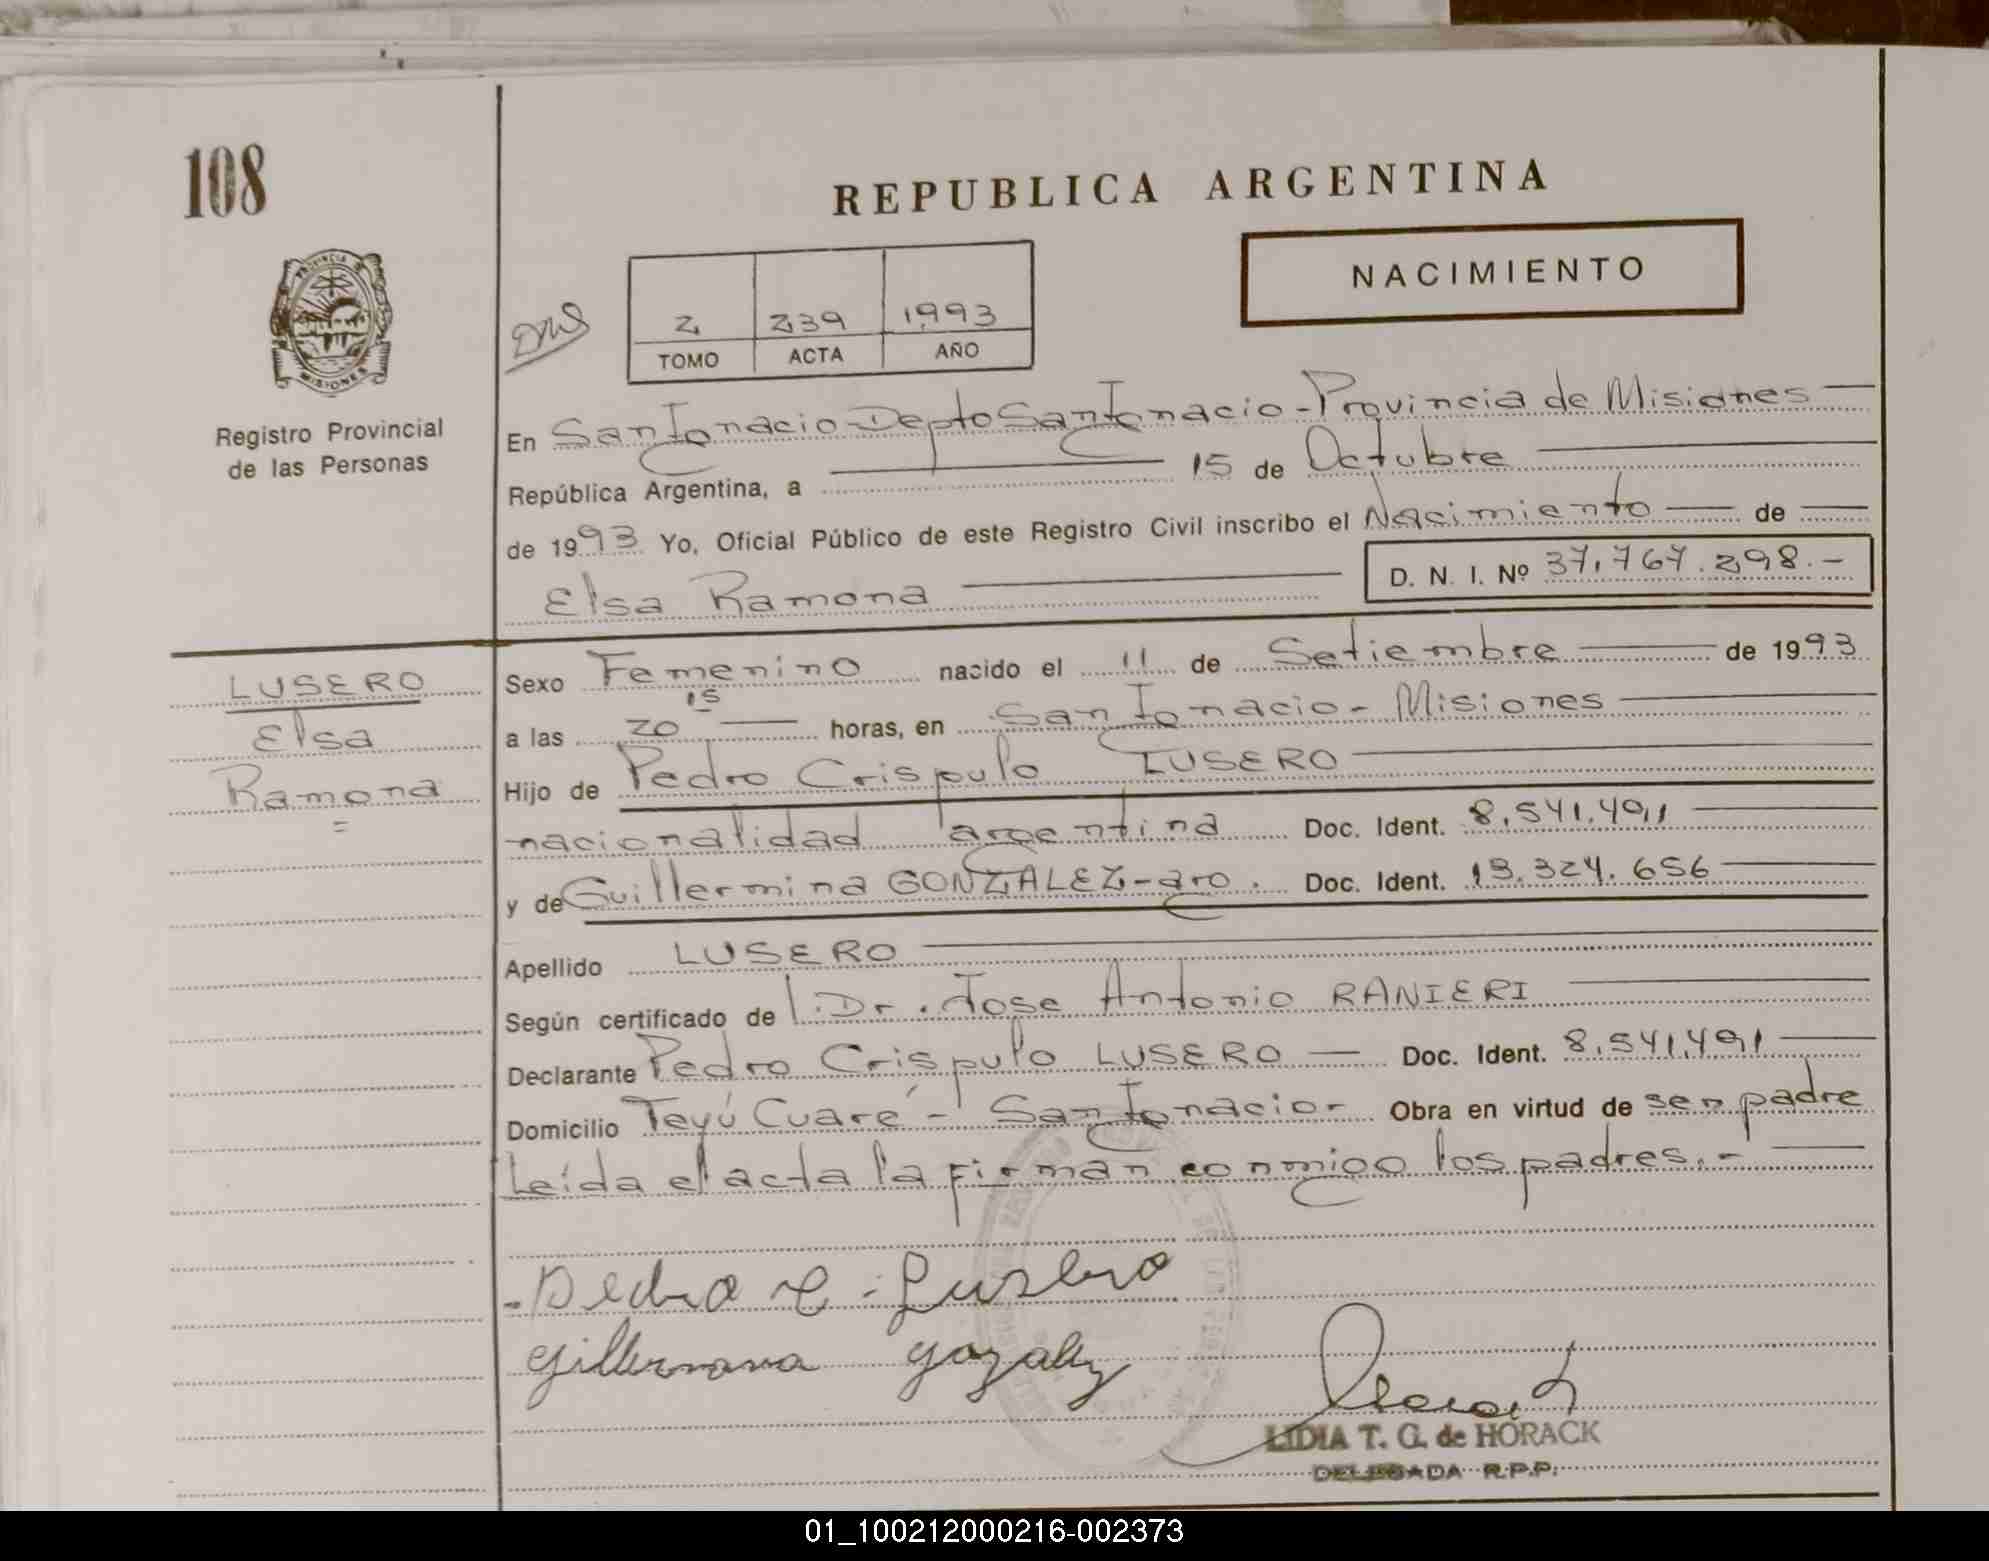 108
REPUBLICA ARGENTINA
PROVINCIA
MISIONES
NACIMIENTO
2 239 1993
TOMO ACTA AÑO
Registro Provincial
de las Personas
En San Ignacio-Depto San Ignacio-Provincia de Misiones
República Argentina, a 15 de Octubre
de 1993 Yo, Oficial Público de este Registro Civil inscribo el Nacimiento de
Elsa Ramona D. N. I. Nº 37.767.298.-
LUSERO
Elsa
Ramona
Sexo Femenino nacido el 11 de Setiembre de 1993
a las 20 15 horas, en San Ignacio- Misiones
Hijo de Pedro Crispulo LUSERO
nacionalidad argentina Doc. Ident. 8.541.491
y de Guillermina GONZALEZ-arg. Doc. Ident. 13.324.656
Apellido LUSERO
Según certificado de l.Dr. Jose Antonio RANIERI
Declarante Pedro Crispulo LUSERO Doc. Ident. 8.541.491
Domicilio Teyú Cuaré - San Ignacio- Obra en virtud de ser padre
Leída el acta la firman conmigo los padres.-
Pedro C. Lusero
LIDIA T. G. de HORACK
DELEGADA R.P.P.
01_100212000216-002373